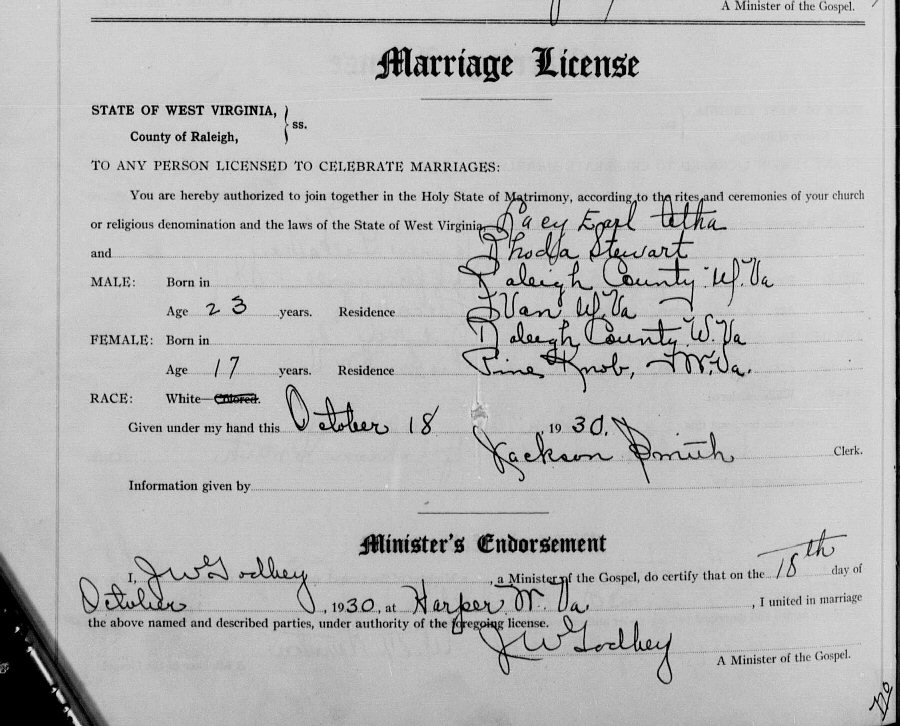 A Minister of the Gospel.
Marriage License
STATE OF WEST VIRGINIA,
County of Raleigh,
ss.
TO ANY PERSON LICENSED TO CELEBRATE MARRIAGES:
You are hereby authorized to join together in the Holy State of Matrimony, according to the rites and ceremonies of your church
or religious denomination and the laws of the State of West Virginia, Lacy Earl
and Rhoda Stewart
MALE: Born in Raleigh County W. Va
Age 23 years. Residence Van W. Va
FEMALE: Born in Raleigh County W. Va
Age 17 years. Residence Pine Knob, W. Va.
RACE: White—Colored.
Given under my hand this October 18, 1930.
Jackson Smith Clerk.
Information given by
Minister's Endorsement
I, J W Godbey, a Minister of the Gospel, do certify that on the 18th day of
October, 1930, at Harper W. Va, I united in marriage
the above named and described parties, under authority of the foregoing license.
J W Godbey
A Minister of the Gospel.